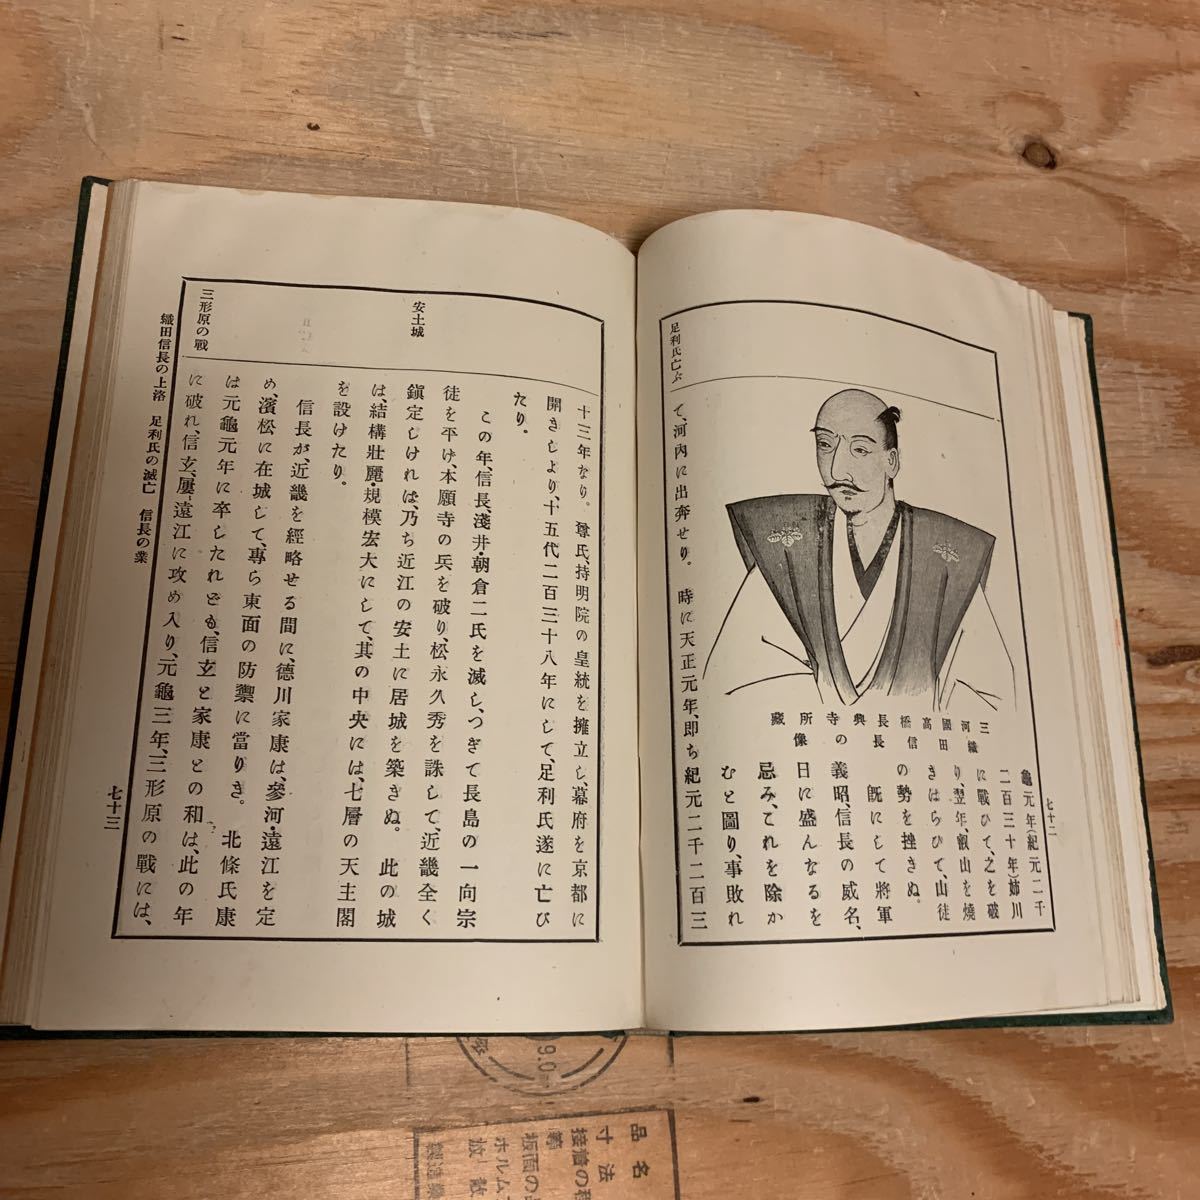 足利氏亡ぶ
三河國高橋長興寺所藏
織田信長の像
龜元年(紀元二千
二百三十年)姉川
に戰ひて、之を破
り、翌年、叡山を燒
きはらひて、山徒
の勢を挫きぬ。
既にして將軍
義昭、信長の威名、
日に盛んなるを
忌み、これを除か
むと圖り、事敗れ
て、河内に出奔せり。時に天正元年、即ち紀元二千二百三
七十二
安土城
三形原の戰
十三年なり。尊氏、持明院の皇統を擁立し、幕府を京都に
開きしより、十五代二百三十八年にして、足利氏遂に亡び
たり。
この年、信長、淺井・朝倉二氏を滅し、つぎて長島の一向宗
徒を平げ、本願寺の兵を破り、松永久秀を誅して、近畿全く
鎭定しければ、乃ち近江の安土に居城を築きぬ。此の城
は、結構壯麗・規模宏大にして、其の中央には、七層の天主閣
を設けたり。
信長が、近畿を經略せる間に、德川家康は、參河・遠江を定
め、濱松に在城して、專ら東面の防禦に當りき。北條氏康
は元龜元年に卒したれども、信玄と家康との和は、此の年
に破れ、信玄、屢遠江に攻め入り、元龜三年、三形原の戰には、
織田信長の上洛 足利氏の滅亡 信長の業
七十三
品名
寸法
接着の種
第
板面の品
ホルムア
放散
製造業